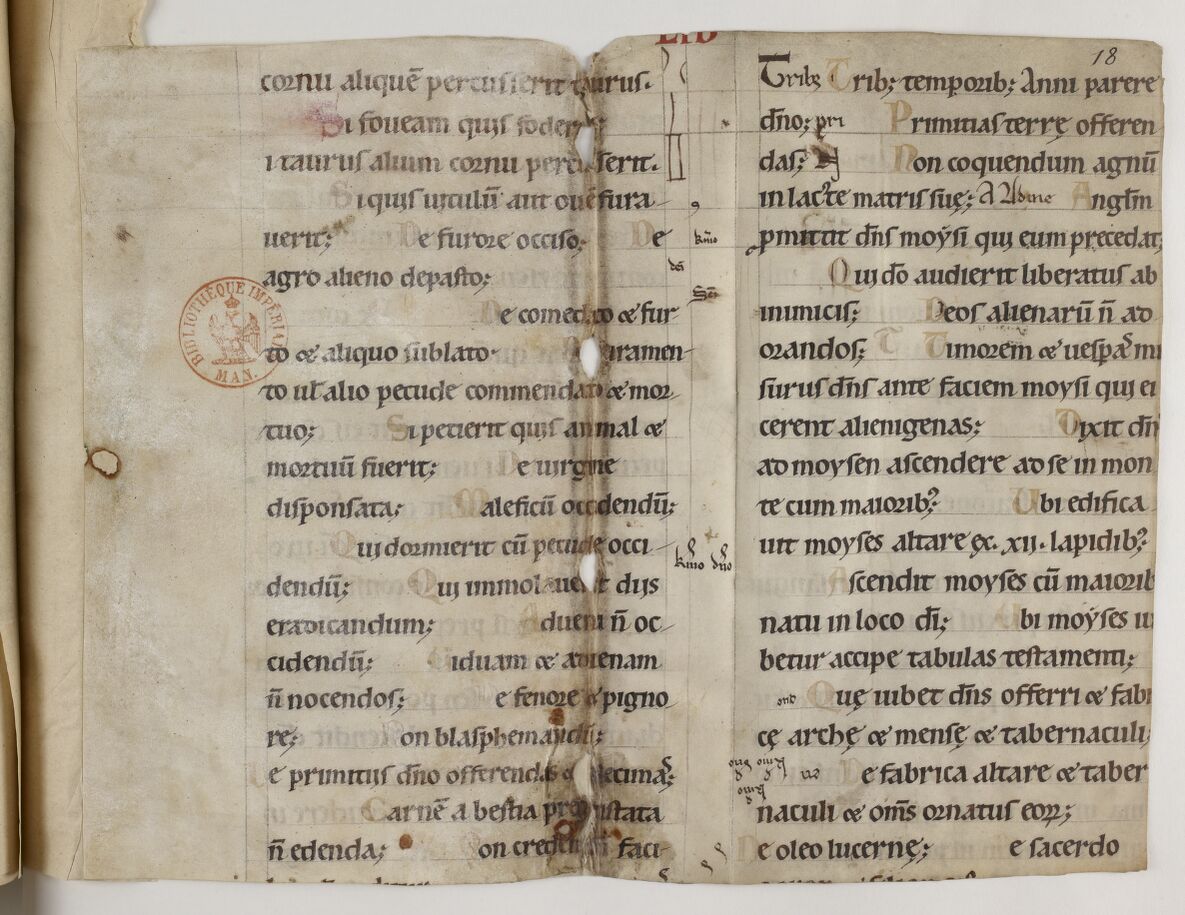 LIB
18
cornu aliquē percusserit taurus.
Si foveam quis foder
i taurus alium cornu percusserit.
Si quis uitulū aut ouē fura
uerit; De furore occiso; De
agro alieno depasto;
De comedto ⁊ fur
to ⁊ aliquo sublato. iuramen
to ul̄ alio pecude commendato ⁊ mor
tuo; Si petierit quis animal ⁊
mortuū fuerit; De uirgine
disponsata; Maleficū occidendū;
Qui dormierit cū pecude occi
dendū; Qui immolauerit diis
eradicandum; Aduenā n̄ oc
cidendū; iduam ⁊ aduenam
n̄ nocendos; e fenore ⁊ pigno
re; on blasphemandū;
e primitiis dn̄o offerendis ⁊ decimas;
Carnē a bestia pregustata
n̄ edenda; on credendū faci
kimo
dn̄i
kimo dn̄o
Tribȝ Tribȝ temporibȝ Anni parere
dn̄o; pri Primitias terrę offeren
das; Non coquendum agnū
in lacte matris suę; A Angl̄m
ꝓmittit dn̄s moẏsi qui eum precedat;
Qui dō audierit liberatus ab
inimicis; Deos alienarū n̄ ad
orandos; T Timorem ⁊ uespas mi
surus dn̄s ante faciem moysi qui ei
cerent alienigenas; Dixit dn̄s
ad moysen ascendere ad se in mon
te cum maioribꝰ; Ubi edifica
uit moyses altare ex .xii. lapidibꝰ;
Ascendit moyses cū maiorib
natu in loco dī; bi moẏses iu
betur accipe tabulas testamenti;
Quę iubet dn̄s offerri ⁊ fabri
cę archę ⁊ mensę ⁊ tabernaculi;
De fabrica altare ⁊ taber
naculi ⁊ om̄s ornatus eoꝝ;
De oleo lucernę; e sacerdo
BIBLIOTHÈQUE IMPÉRIALE
MAN.